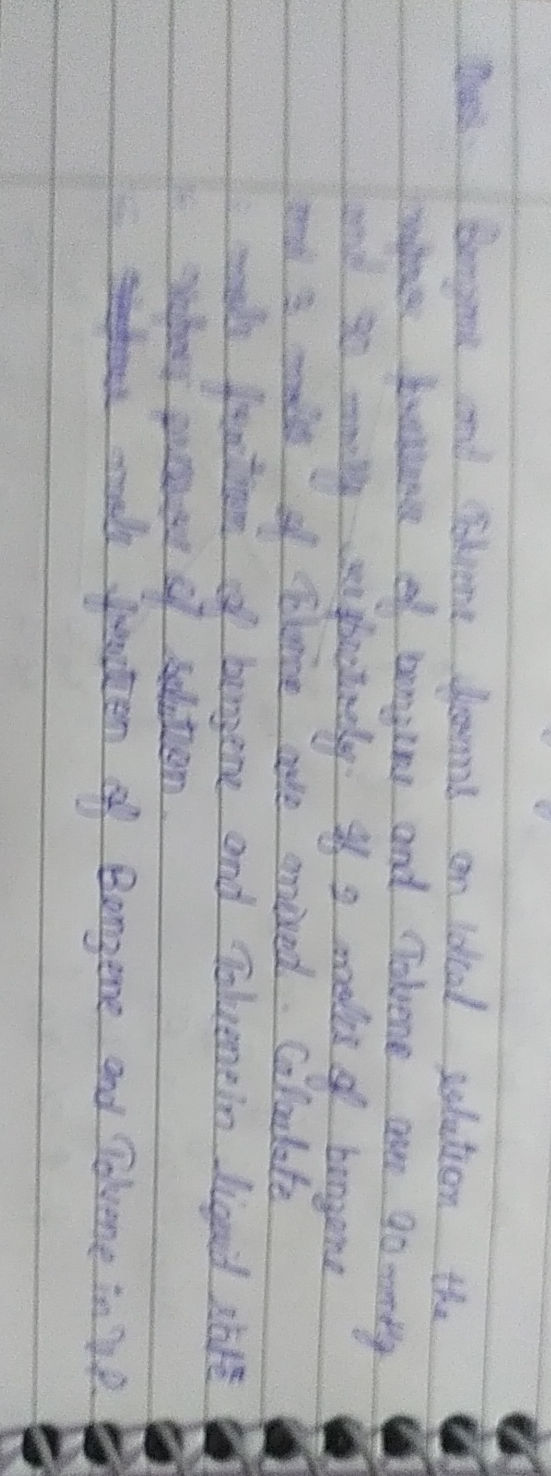 Benzene and Toluene forms an ideal solution the
vapour pressure of benzene and Toluene are 90 mmHg
and mmHg respectively. If 2 moles of benzene
and moles of Toluene are mixed. Calculate
mole fraction of benzene and Toluene in liquid state
vapour pressure of solution.
mole fraction of Benzene and Toluene in V.P.